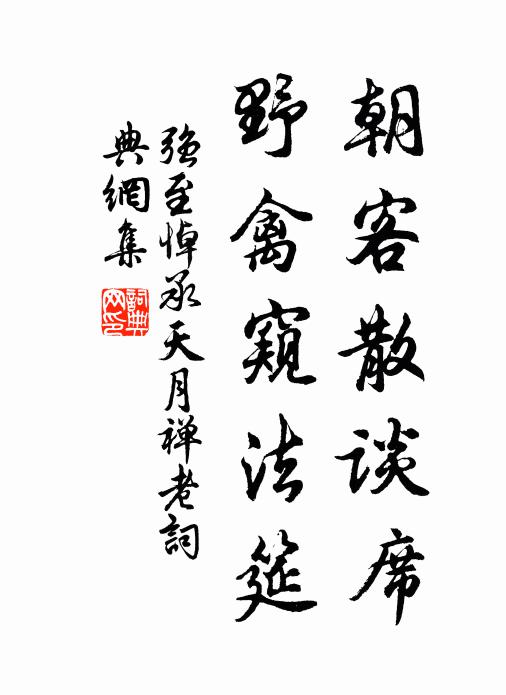 朝客散談席
野禽窺法筵
強至悼承天月禅老詞
典網集
詞典網印